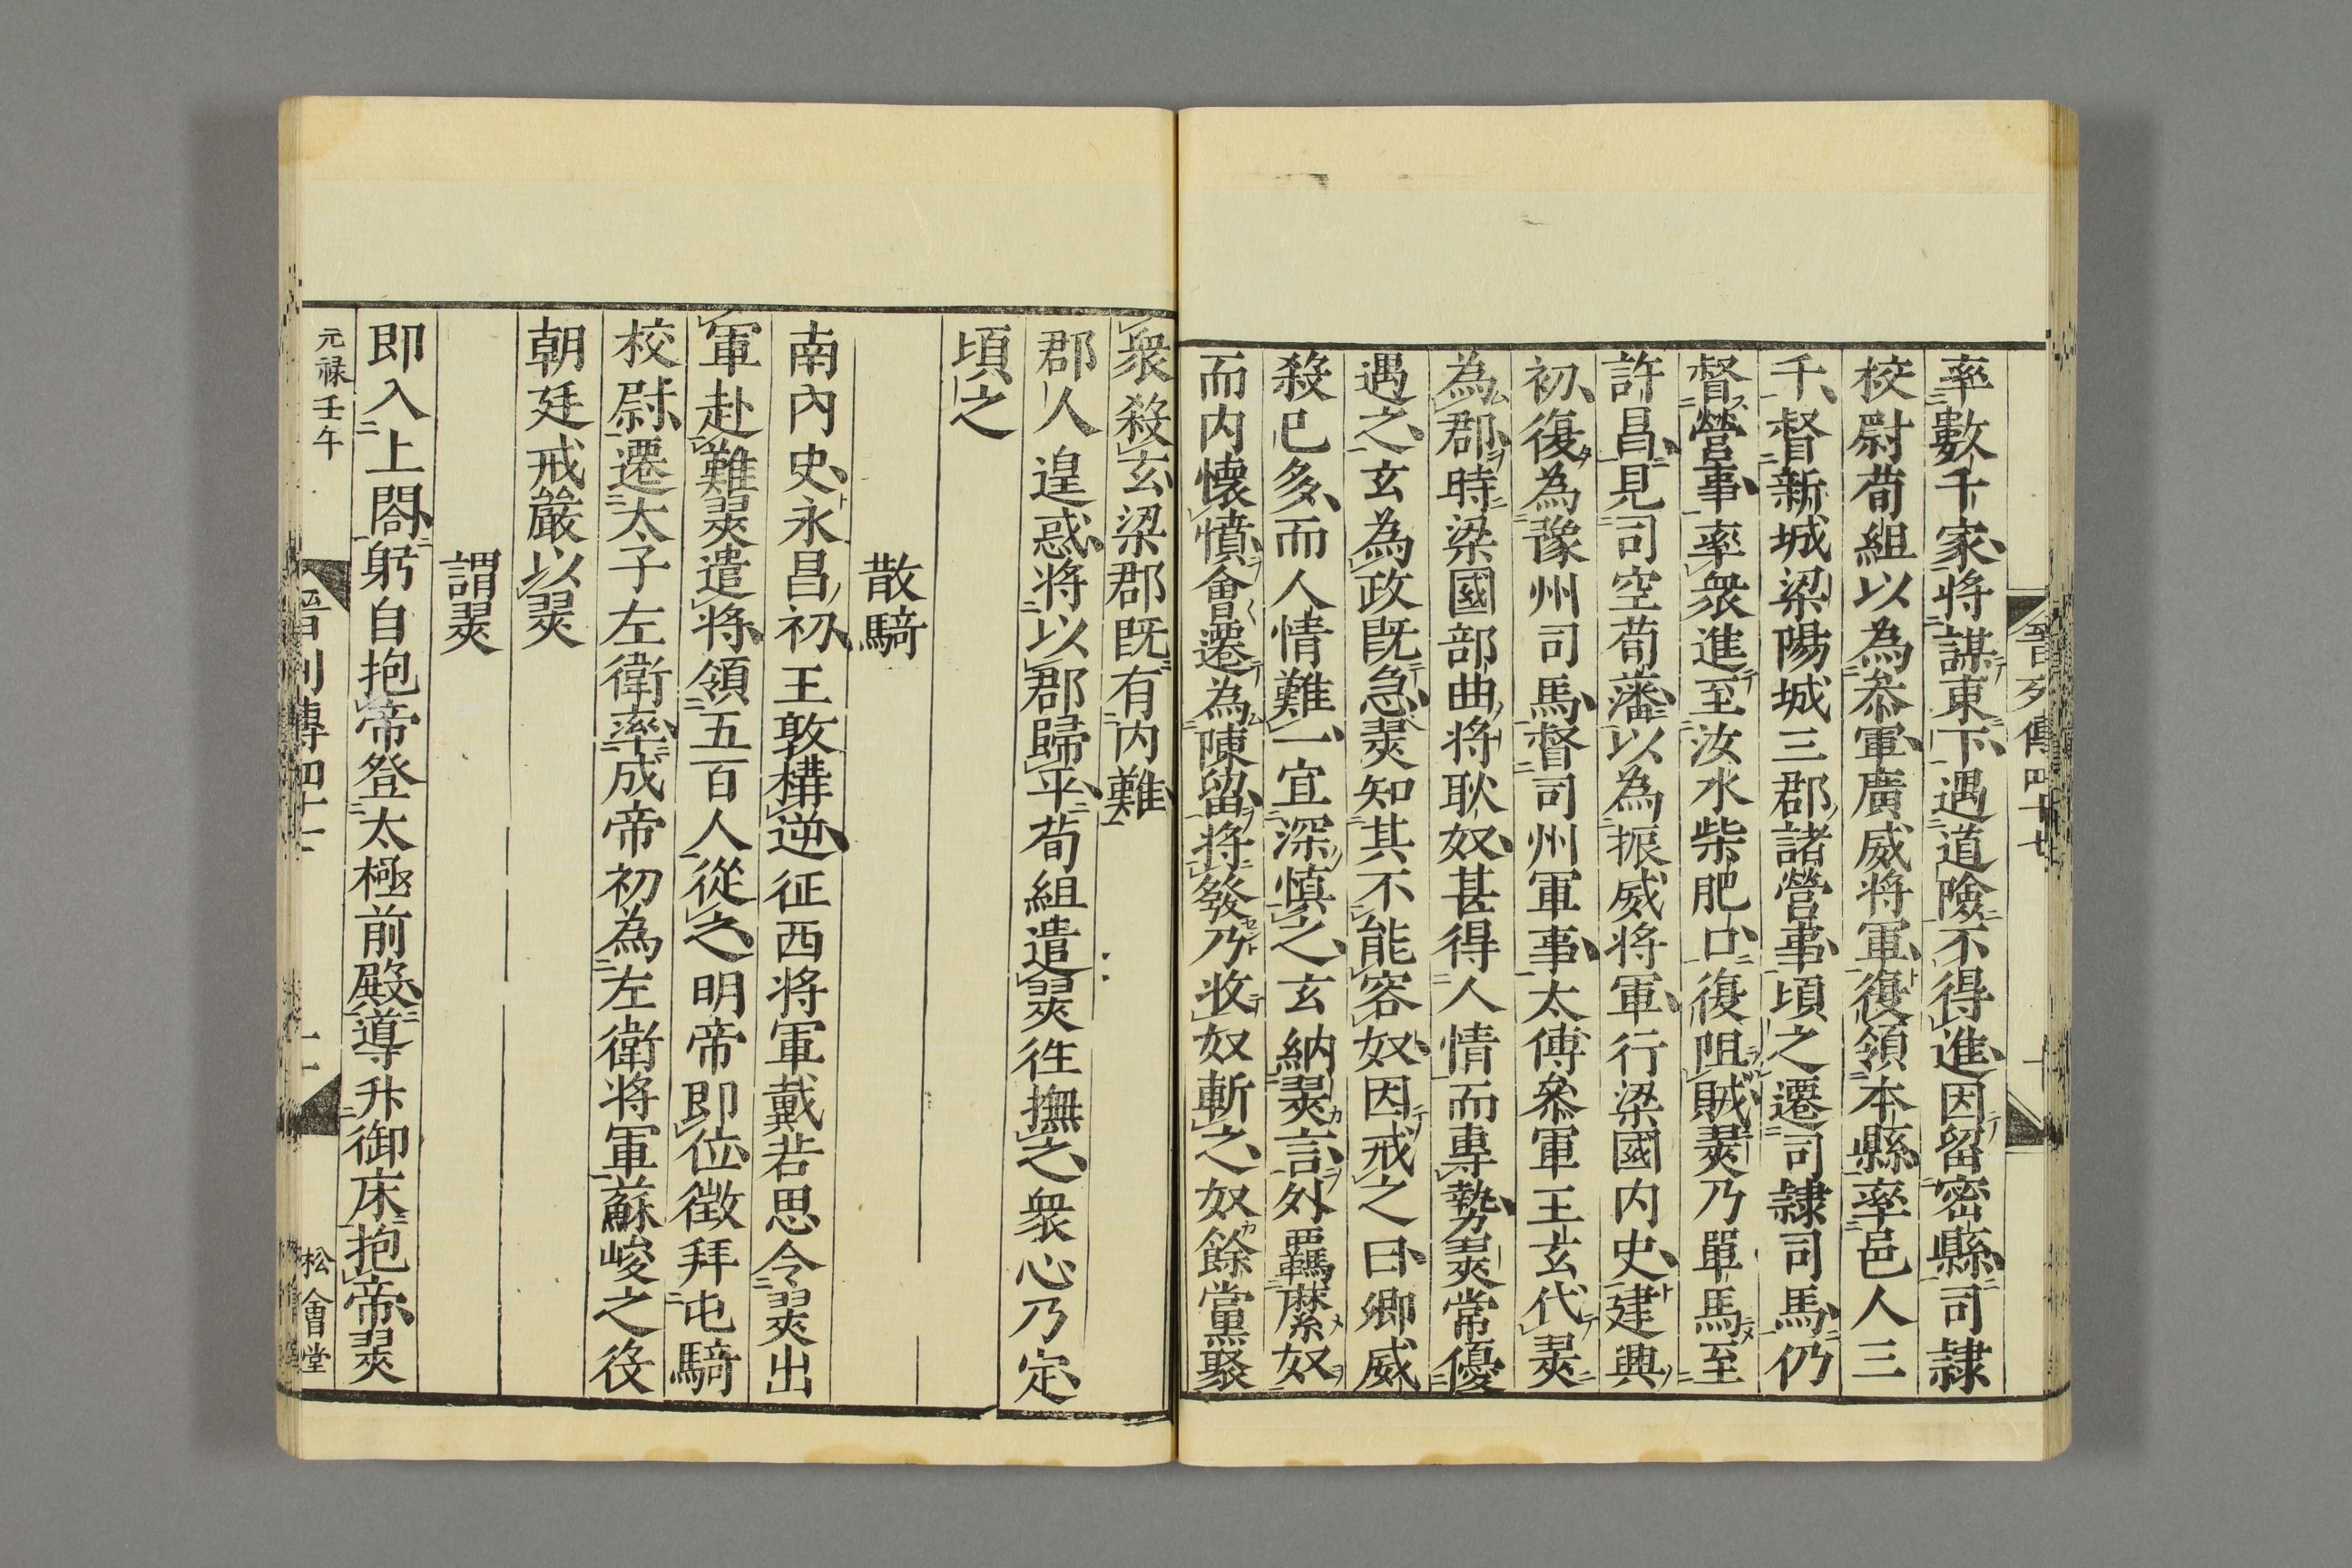 晉列傳四十七 十
率數千家將謀東下遇道險不得進因留密縣司隸
校尉荀組以為叅軍廣威将軍復領本縣率邑人三
千督新城梁陽城三郡諸營事頃之遷司隸司馬仍
督營事率衆進至汝水柴肥口復阻賊翜乃單馬至
許昌見司空荀藩以為振威将軍行梁國内史建興
初復為豫州司馬督司州軍事太傅叅軍王玄代翜
為郡時梁國部曲將耿奴甚得人情而專勢翜常優
遇之玄為政既急翜知其不能容奴因戒之曰卿威
殺已多而人情難一宜深慎之玄納翜言外羈縻奴
而内懷憤會遷為陳留將發乃收奴斬之奴餘黨聚
衆殺玄梁郡既有内難
郡人遑惑将以郡歸平荀組遣翜徃撫之衆心乃定
頃之
散騎
南内史永昌初王敦構逆征西将軍戴若思令翜出
軍赴難翜遣将領五百人從之明帝即位徵拜屯騎
校尉遷太子左衛率成帝初為左衛将軍蘇峻之役
朝廷戒嚴以翜
謂翜
即入上閤躬自抱帝登太極前殿導升御床抱帝翜
元禄壬午
松會堂